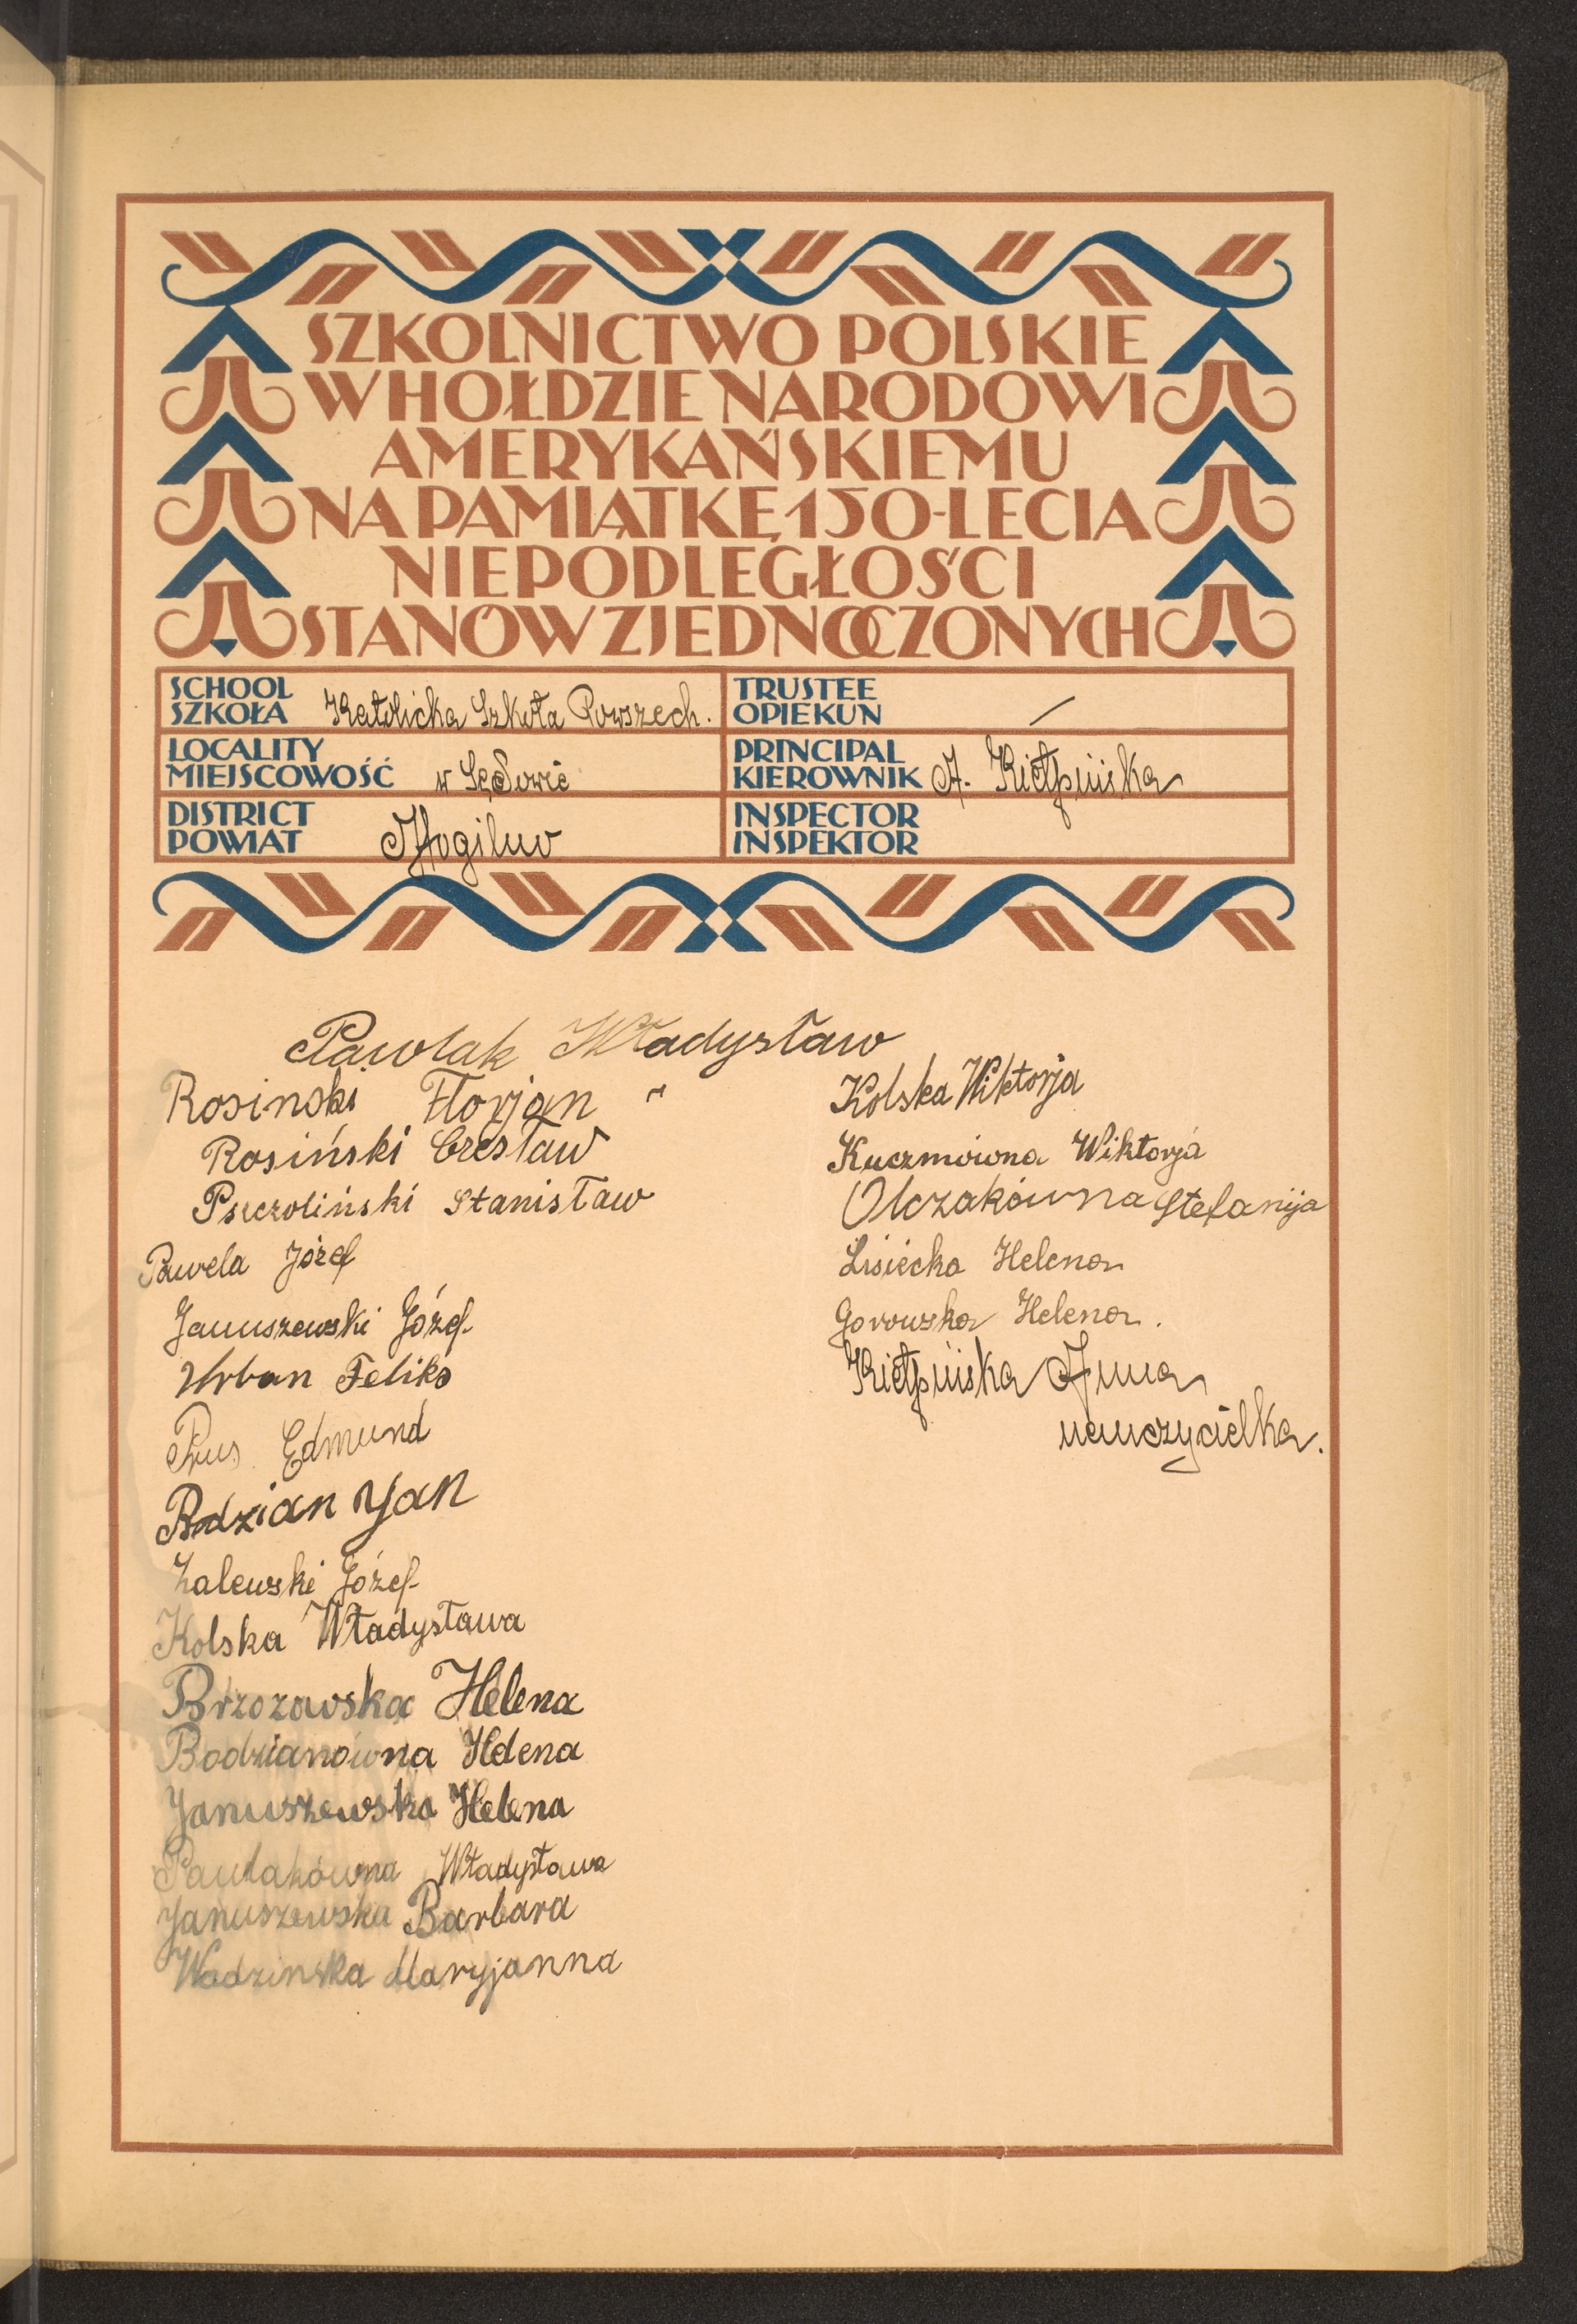 SZKOLNICTWO POLSKIE
W HOŁDZIE NARODOWI
AMERYKAŃSKIEMU
NA PAMIĄTKĘ 150-LECIA
NIEPODLEGŁOŚCI
STANÓW ZJEDNOCZONYCH
SCHOOL
SZKOŁA Katolicka Szkoła Powszech.
TRUSTEE
OPIEKUN /
LOCALITY
MIEJSCOWOŚĆ w
PRINCIPAL
KIEROWNIK A. Kiełpińska
DISTRICT
POWIAT Mogilno
INSPECTOR
INSPEKTOR
Pawlak Władysław
Rosinski Florjan "
Rosiński Czesław
Pszczoliński Stanisław
Pawela Józef
Januszewski Józef
Urban Feliks
Prus Edmund
Bodzian Jan
Zalewski Józef
Kolska Władysława
Brzozowska Helena
Bodzianówna Helena
Januszewska Helena
Pawlakówna Władysława
Januszewska Barbara
Wodzinska Maryjanna
Kolska Wiktorja
Kuczmówna Wiktorja
Olczakówna Stefanija
Lisiecka Helena
Gorowska Helena.
Kiełpińska Anna
nauczycielka.